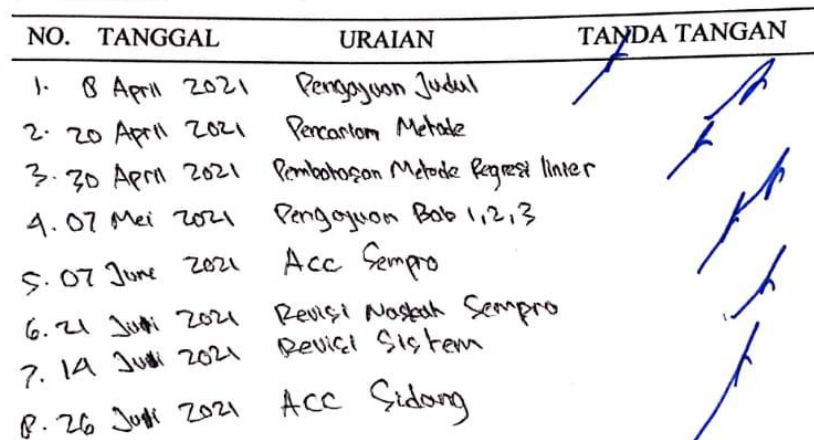 NO. TANGGAL URAIAN TANDA TANGAN
1. 8 April 2021 Pengajuan Judul
2. 20 April 2021 Pencarian Metode
3. 30 April 2021 Pembahasan Metode Regresi linier
4. 07 Mei 2021 Pengajuan Bab 1,2,3
5. 07 June 2021 Acc Sempro
6. 21 2021 Revisi Naskah Sempro
7. 14 2021 Revisi Sistem
8. 26 2021 ACC Sidang